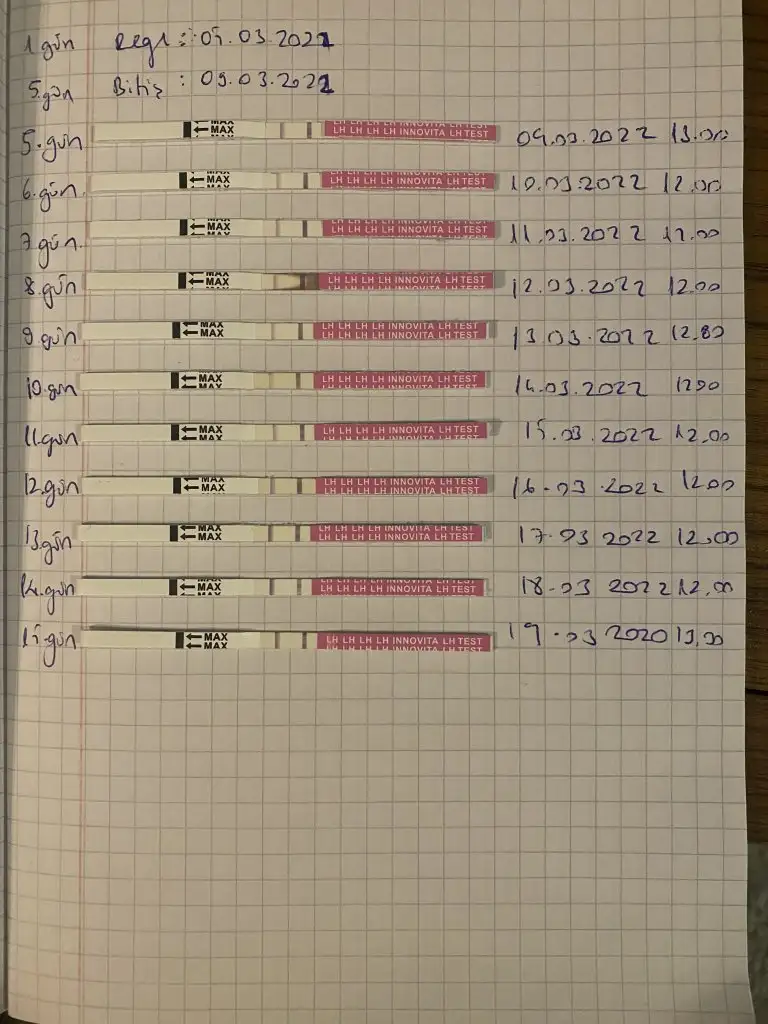 1 gün Regl : 05.03.2022
5.gün Bitiş : 09.03.2022
5.gün MAX MAX LH LH LH LH INNOVITA LH TEST 09.03.2022 13.00
6.gün MAX LH LH LH LH INNOVITA LH TEST 10.03.2022 12.00
7.gün. MAX LH LH LH LH INNOVITA LH TEST 11.03.2022 12.00
8.gün MAX MAX LH LH LH LH INNOVITA LH TEST 12.03.2022 12.00
9.gün MAX MAX LH LH LH LH INNOVITA LH TEST LH LH LH LH INNOVITA LH TEST 13.03.2022
10.gün MAX MAX LH LH LH LH INNOVITA LH TEST LH LH LH LH INNOVITA LH TEST 14.03.2022 1200
11.gün MAX MAX LH LH LH LH INNOVITA LH TEST 15.03.2022 12.00
12.gün MAX MAX LH LH LH LH INNOVITA LH TEST LH LH LH LH INNOVITA LH TEST 16.03.2022 12.00
13.gün MAX MAX LH LH LH LH INNOVITA LH TEST LH LH LH LH INNOVITA LH TEST 17.03 2022 12,00
14.gün MAX MAX LH LH LH LH INNOVITA LH TEST 18.03 2022 12.00
15.gün MAX MAX LH LH LH LH INNOVITA LH TEST 19.03 2020 13,00